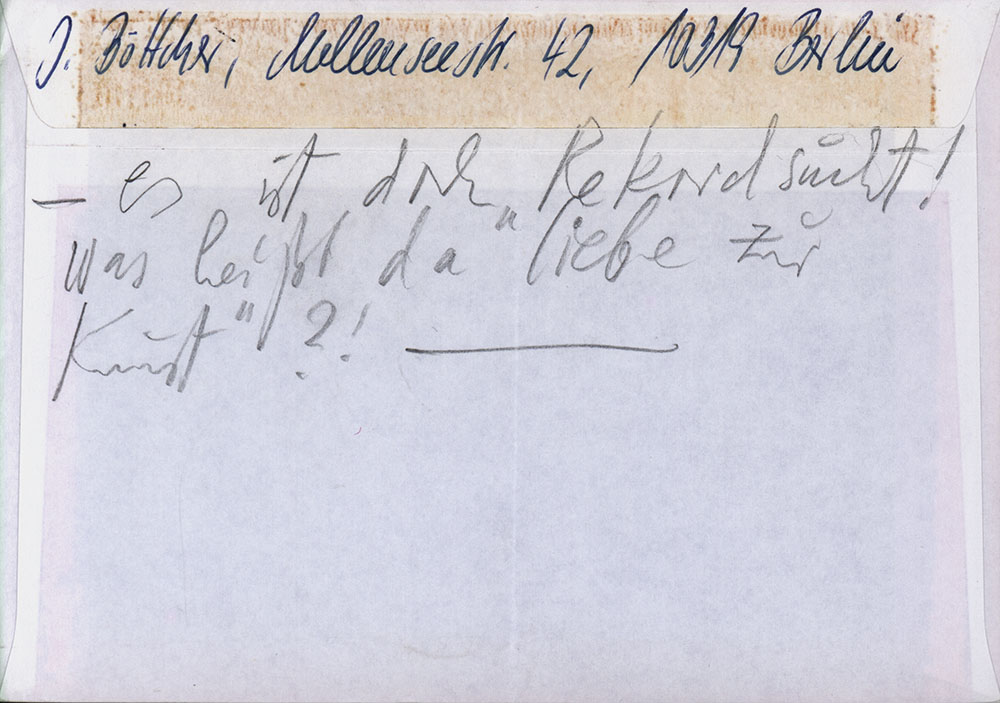 J. Böttcher, Mellenseestr. 42, 10319 Berlin
– es ist doch Rekordsucht!
was heißt da "liebe zur
Kunst" ?!